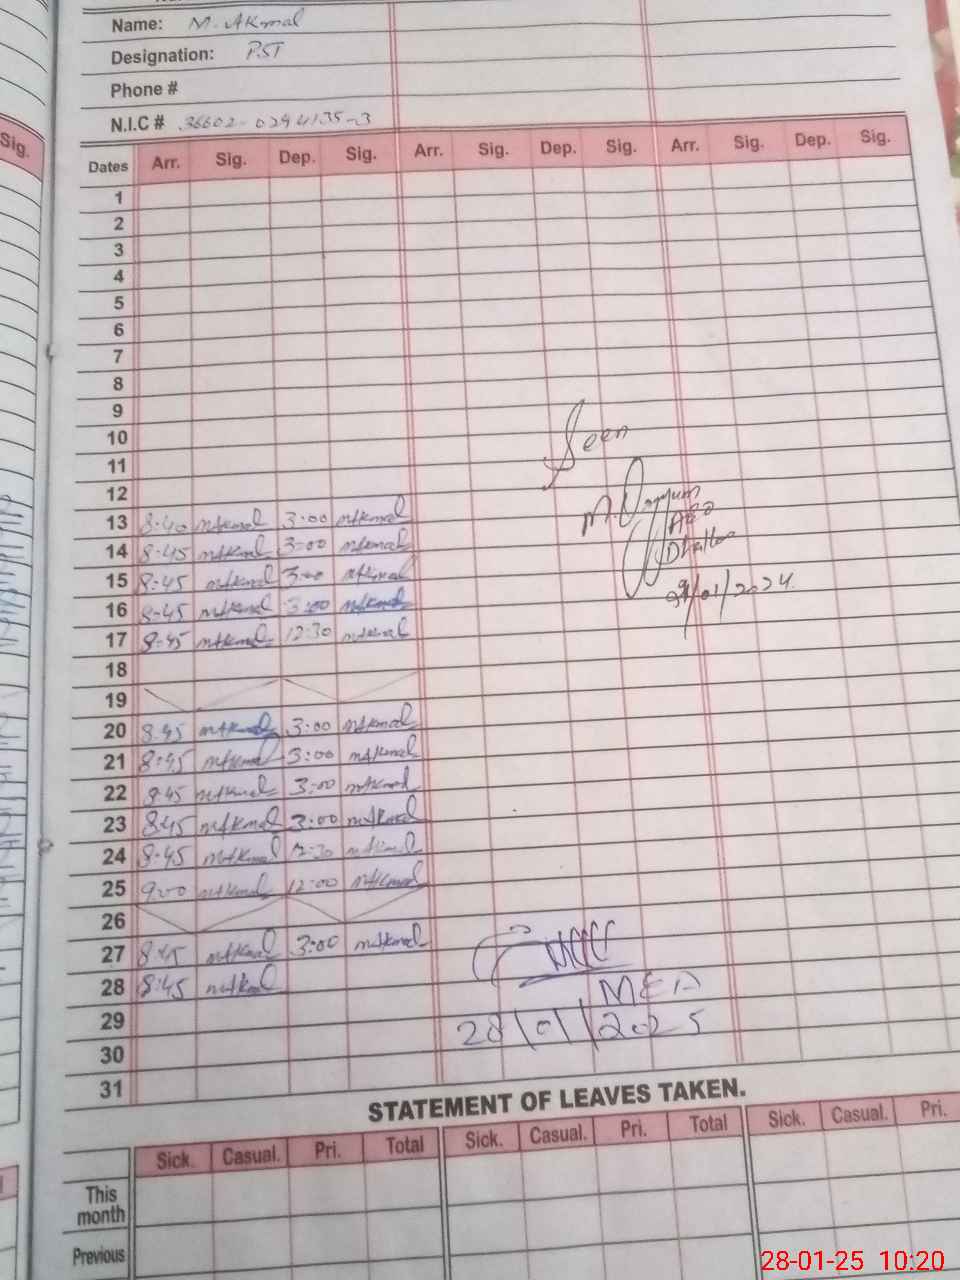 Name: M. Akmal
Designation: PST
Phone #
N.I.C # 36602-0294135-3
Sig.
Dates Arr. Sig. Dep. Sig. Arr. Sig. Dep. Sig. Arr. Sig. Dep. Sig.
1
2
3
4
5
6
7
8
9
10 Seen
11
12
13 8:40 mAkmal 3:00 mAkmal M. Qayyum
14 8:45 mAkmal 3:00 mAkmal
15 8:45 mAkmal 3:00 mAkmal
16 8:45 mAkmal 3:00 mAkmal /01/2024
17 8:45 mAkmal 12:30 mAkmal
18
19
20 8:45 mAkmal 3:00 mAkmal
21 8:45 mAkmal 3:00 mAkmal
22 8:45 mAkmal 3:00 mAkmal
23 8:45 mAkmal 3:00 mAkmal
24 8:45 mAkmal 12:30 mAkmal
25 9:00 mAkmal 12:00 mAkmal
26
27 8:45 mAkmal 3:00 mAkmal
28 8:45 mAkmal MEA
29 28/01/2025
30
31
STATEMENT OF LEAVES TAKEN.
Sick. Casual. Pri. Total Sick. Casual. Pri. Total Sick. Casual. Pri.
This month
Previous
28-01-25 10:20